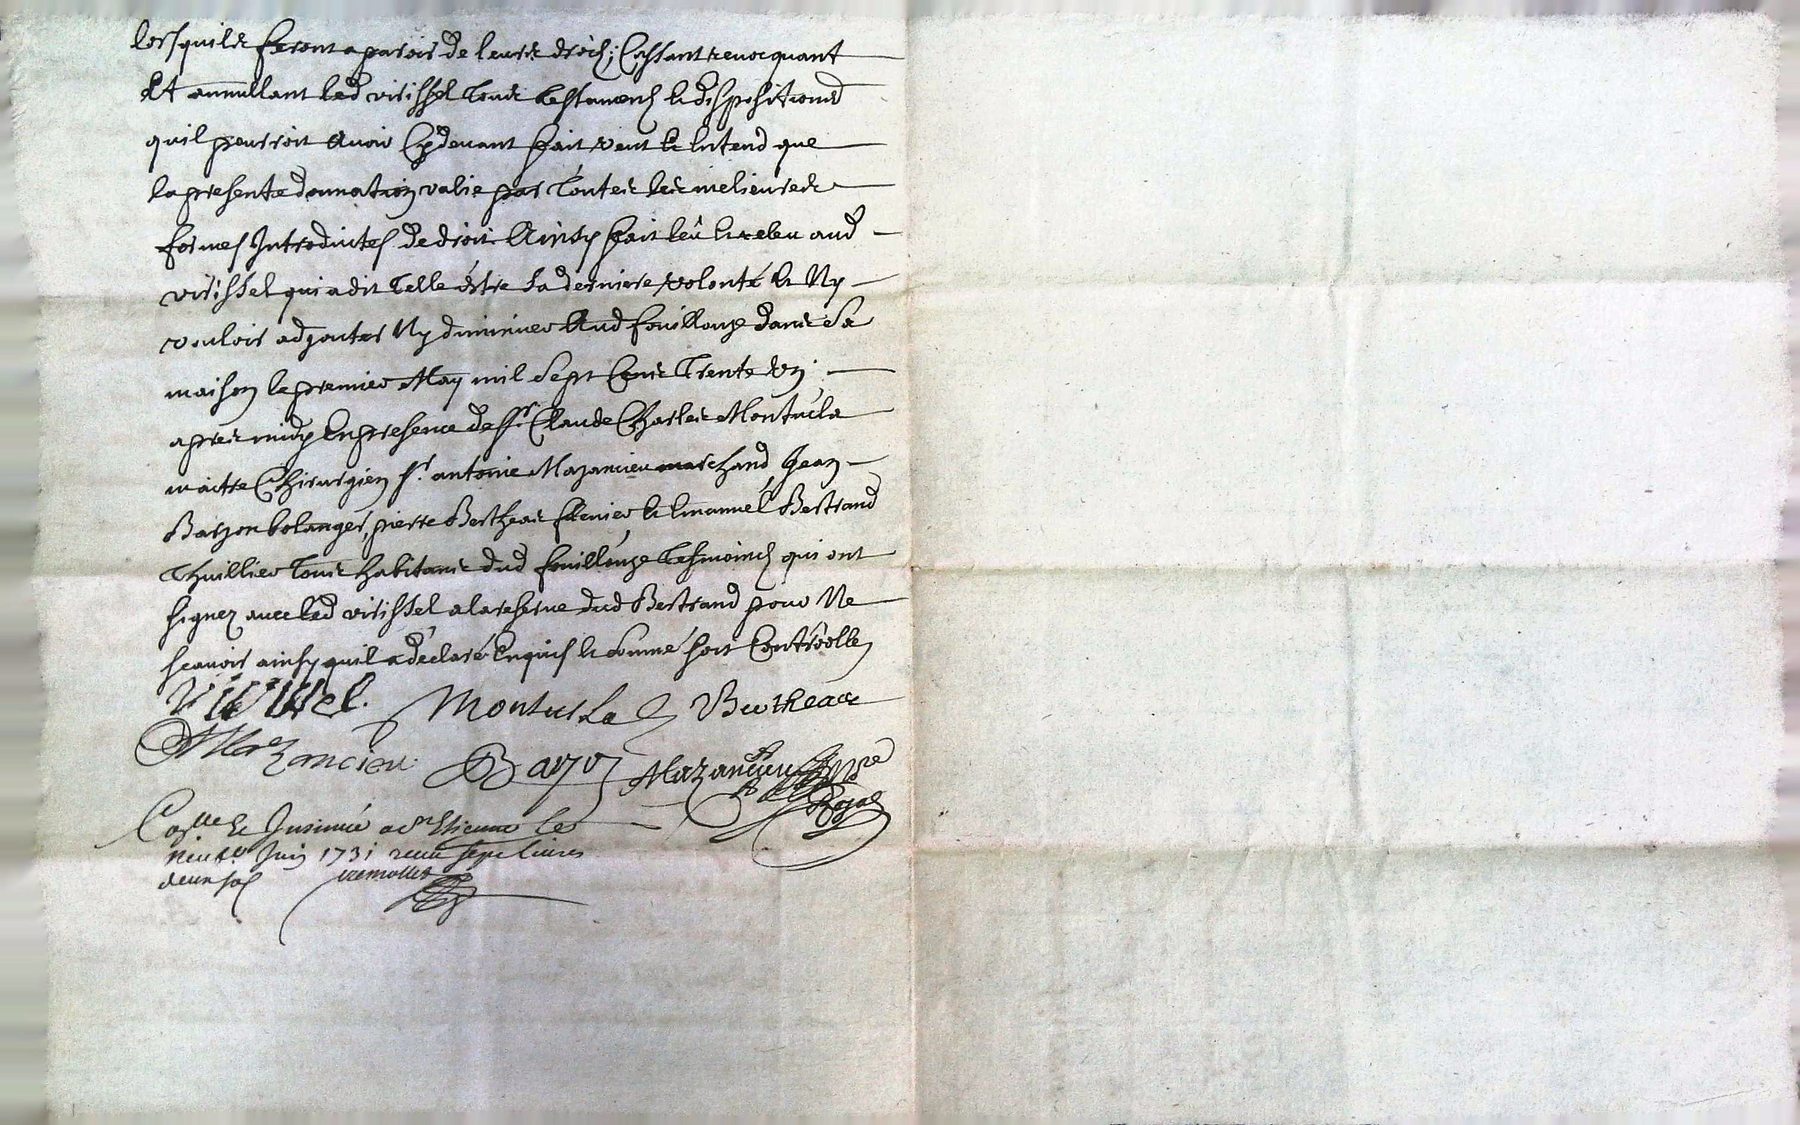 lorsquils feront aparoir de leurs droits; Cassant revocquant
Et annullant led virissel tous testaments et dispositions
quil pourroit Avoir Cydevant fait veut et entend que
la presente donnation valie par toutes les melieures
formes Introduites de droit Ainsy fait leû et releu aud
virissel qui a dit telle estre sa derniere volonté et Ny
vouloir adjouter Ny diminuer Aud fouillouze dans sa
maison le premier May mil sept Cents trente un
apres midy En presence de sr. Claude Charles Montucla
maitre Chirurgien sr. antoine Mazancieu marchand Jean
Bayon bolanger, pierre Bertheas fermier et Emanuel Bertrand
thuillier tous habitans dud fouillouze tesmoins qui ont
signez avec led virissel a la reserve dud Bertrand pour Ne
scavoir ainsy quil a déclaré Enquis et sommé soit Controolle
Virissel. Montucla Bertheas
A Mazancieu Bayon Mazancieu Nre
Royal
Conlle et Insinué a St Etienne le
neuf Juin 1731 receu sept livres
deux sols